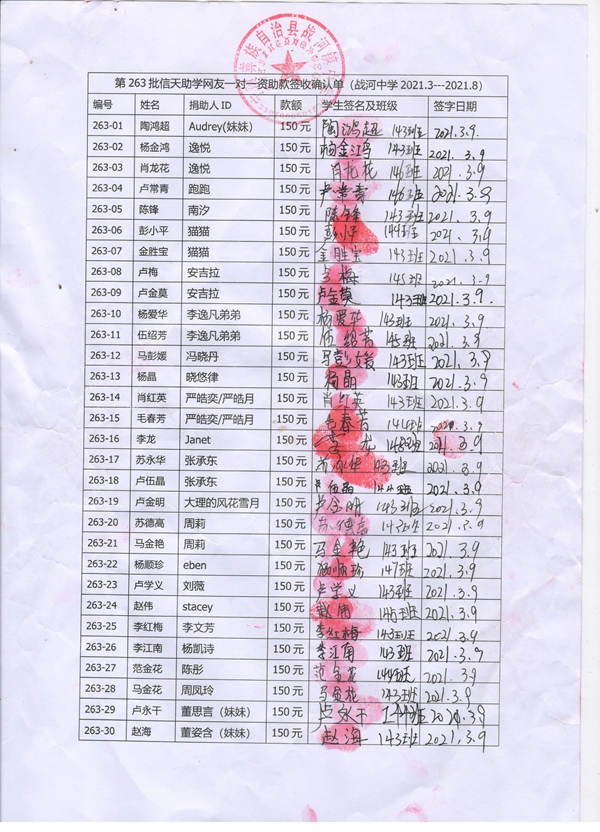 族自治县战河镇
第 263 批信天助学网友一对一资助款签收确认单（战河中学 2021.3---2021.8）
编号 姓名 捐助人 ID 款额 学生签名及班级 签字日期
263-01 陶鸿超 Audrey(妹妹) 150 元 陶鸿超 143班 2021.3.9.
263-02 杨金鸿 逸悦 150 元 杨金鸿 143班 2021.3.9
263-03 肖龙花 逸悦 150 元 肖龙花 146班 2021.3.9
263-04 卢常青 跑跑 150 元 卢常青 146班 2021.3.9
263-05 陈锋 南汐 150 元 陈锋 143班 2021.3.9
263-06 彭小平 猫猫 150 元 彭小平 144班 2021.3.9
263-07 金胜宝 猫猫 150 元 金胜宝 143班 2021.3.9
263-08 卢梅 安吉拉 150 元 卢梅 145班 2021.3.9
263-09 卢金莫 安吉拉 150 元 卢金莫 143班 2021.3.9.
263-10 杨爱华 李逸凡弟弟 150 元 杨爱华 143班 2021.3.9
263-11 伍绍芳 李逸凡弟弟 150 元 伍绍芳 145班 2021.3.9
263-12 马彭媛 冯晓丹 150 元 马彭媛 143班 2021.3.9
263-13 杨晶 晓悠律 150 元 杨晶 143班 2021.3.9
263-14 肖红英 严皓奕/严皓月 150 元 肖红英 143班 2021.3.9
263-15 毛春芳 严皓奕/严皓月 150 元 毛春芳 144班 2021.3.9
263-16 李龙 Janet 150 元 李龙 148班 2021.3.9
263-17 苏永华 张承东 150 元 苏永华 2021.3.9
263-18 卢伍晶 张承东 150 元 卢伍晶 144班 2021.3.9
263-19 卢金明 大理的风花雪月 150 元 卢金明 143班 2021.3.9
263-20 苏德高 周莉 150 元 苏德高 147班 2021.3.9
263-21 马金艳 周莉 150 元 马金艳 143班 2021.3.9
263-22 杨顺珍 eben 150 元 杨顺珍 147班 2021.3.9
263-23 卢学义 刘薇 150 元 卢学义 143班 2021.3.9
263-24 赵伟 stacey 150 元 赵伟 145班 2021.3.9
263-25 李红梅 李文芳 150 元 李红梅 143班 2021.3.9
263-26 李江南 杨凯诗 150 元 李江南 143班 2021.3.9
263-27 范金花 陈彤 150 元 范金花 144班 2021.3.9
263-28 马金花 周凤玲 150 元 马金花 143班 2021.3.9
263-29 卢永干 董思言（妹妹） 150 元 卢永干 144班 2021.3.9
263-30 赵海 董姿含（妹妹） 150 元 赵海 143班 2021.3.9